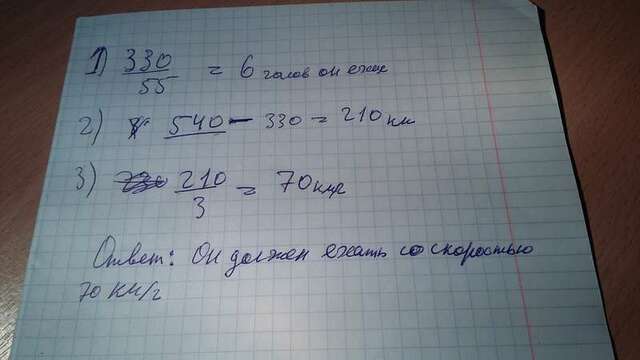 1) 330/55 = 6 голов он ехал
2) 540 - 330 = 210 км
3) 210/3 = 70 км/г
Ответ: Он должен ехать со скоростью
70 км/г